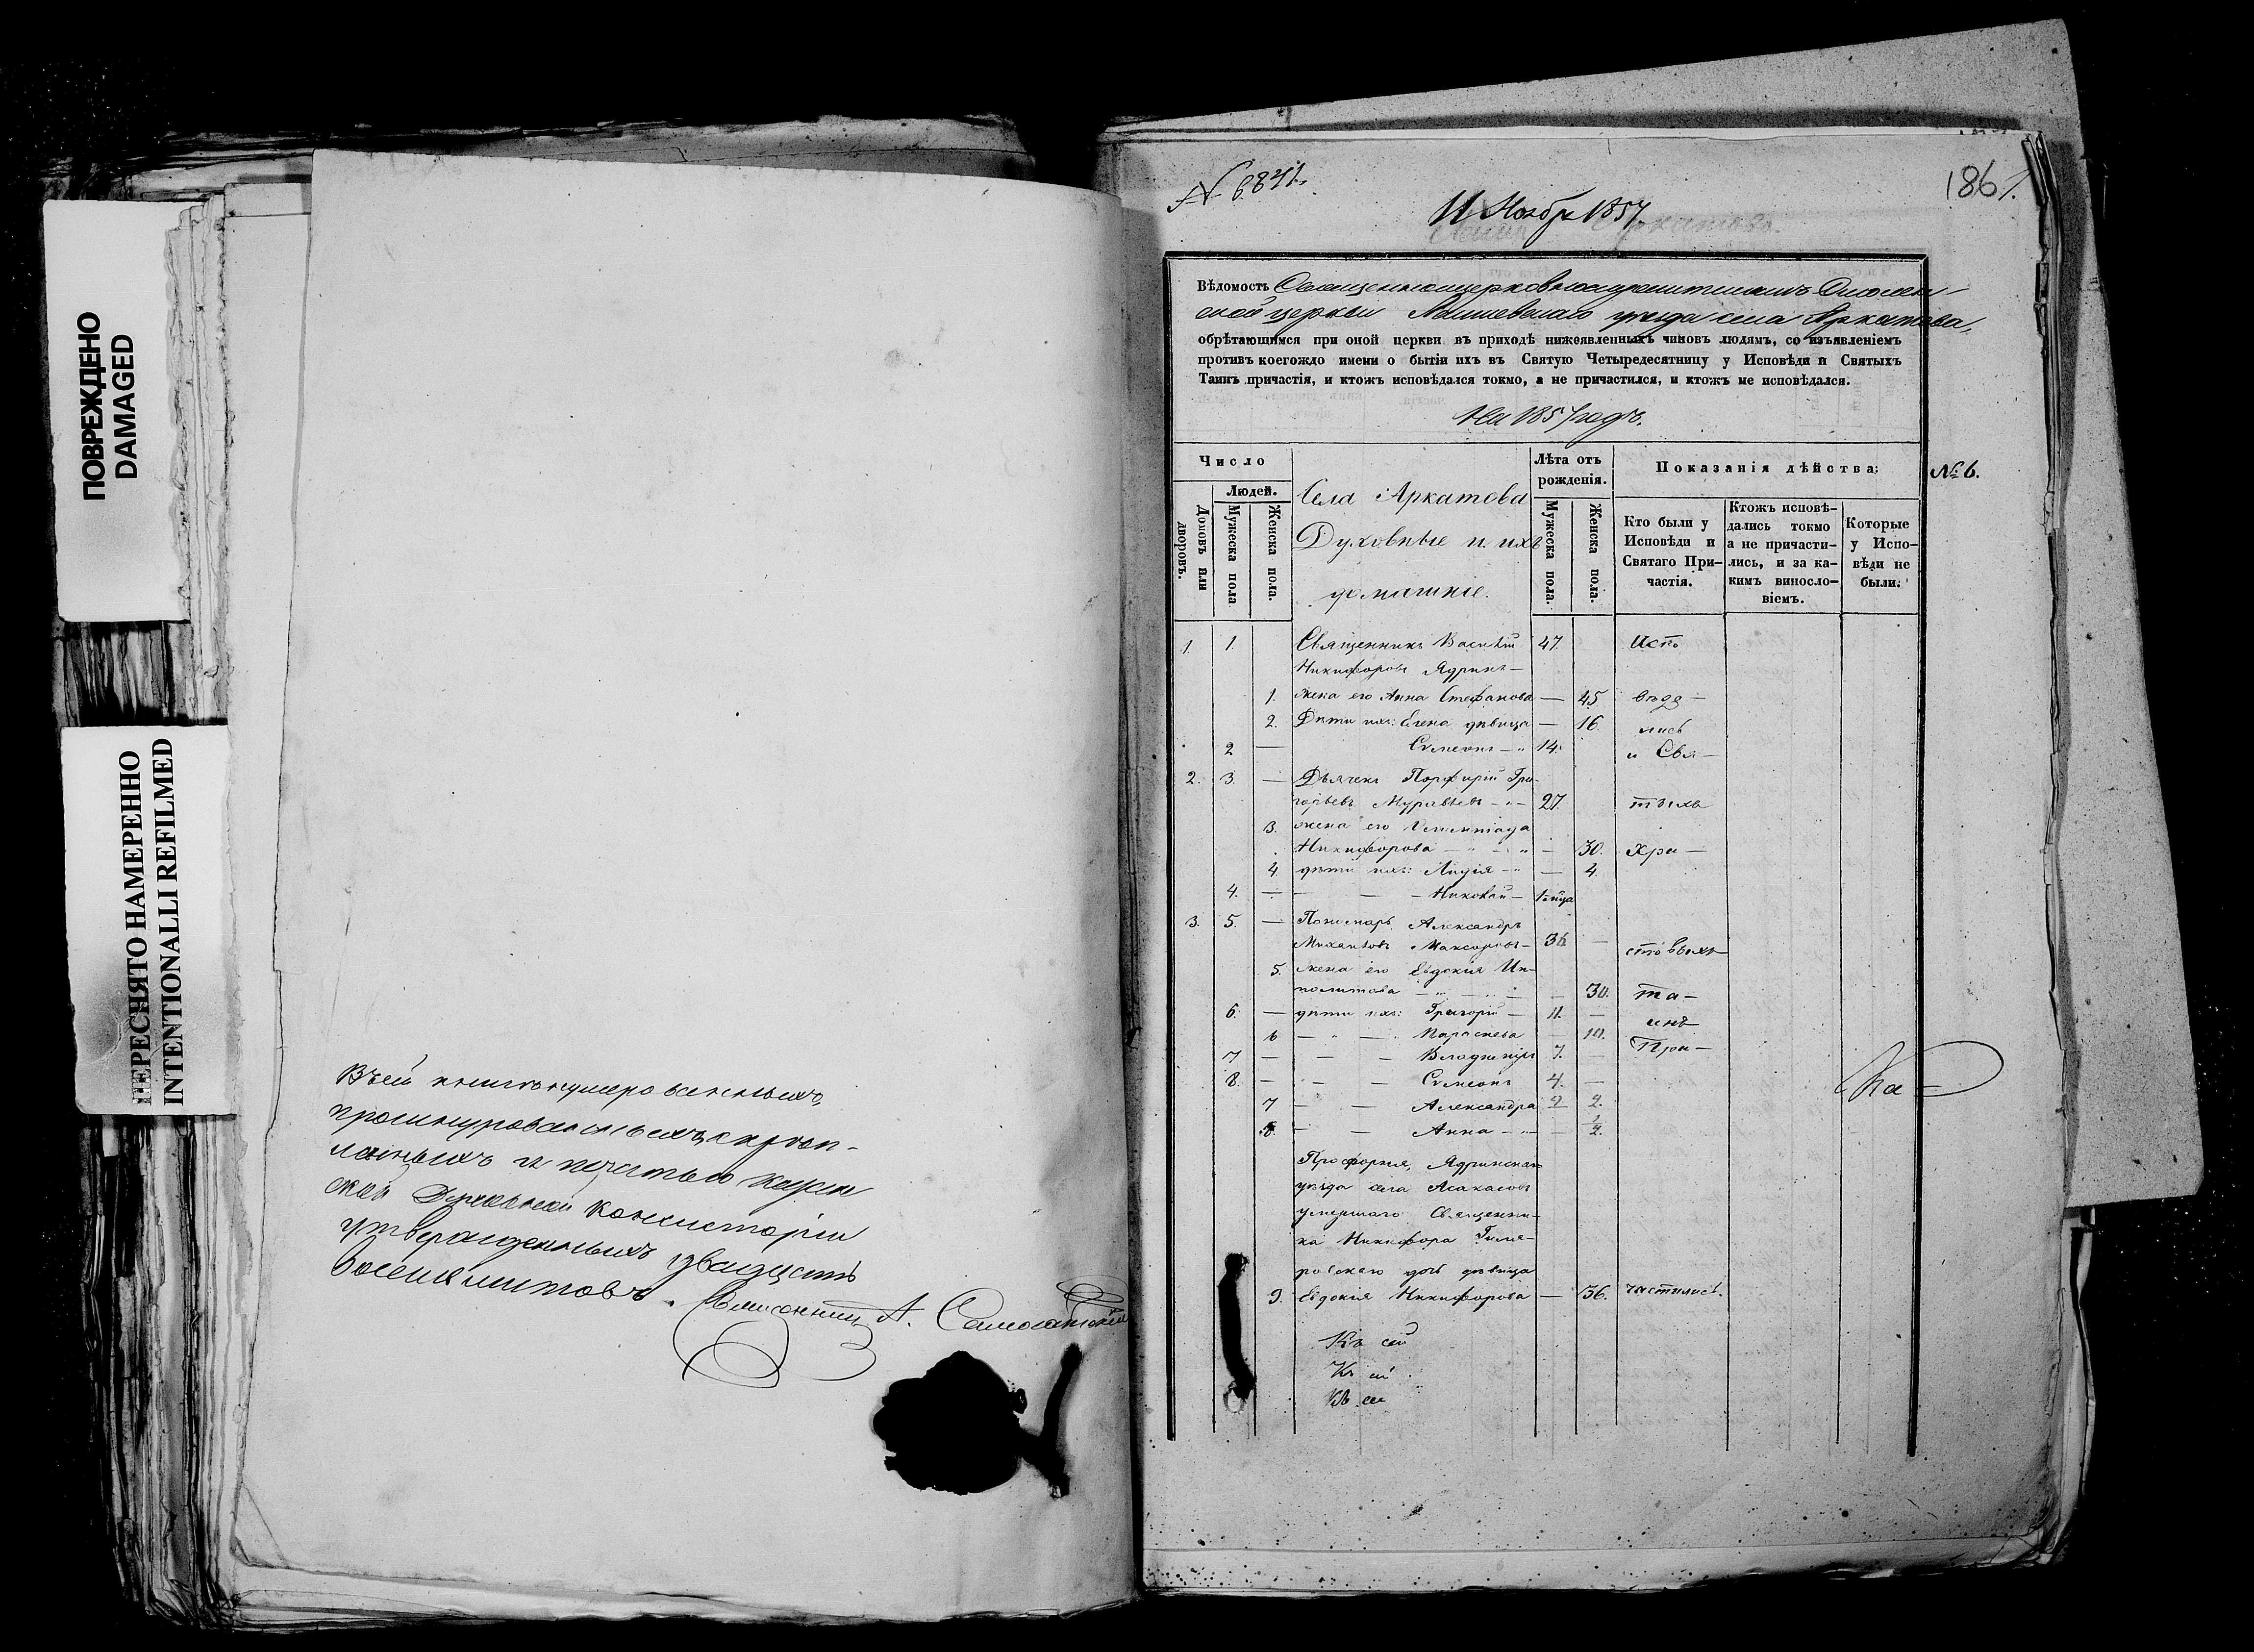 ПОВРЕЖДЕНО
DAMAGED
ПЕРЕСНЯТО НАМЕРЕННО
INTENTIONALLI REFILMED
Въ сей книгѣ нумерованныхъ,
прошнурованныхъ, скрѣп-
ленныхъ и печатью Казан
ской Духовной Консисторіи
утвержденныхъ двадцать
восемь листовъ.
Священникъ А.
N 6841.
11 Ноября 1857.
186
Вѣдомость Священноцерковнослужителемъ Смолен-
ской церкви Лаишевскаго уѣзда села Аркатова,
обрѣтающимся при оной церкви въ приходѣ нижеявленныхъ чиновъ людямъ, со изъявленіемъ
противъ коегождо имени о бытіи ихъ въ Святую Четыредесятницу у Исповѣди и Святыхъ
Таинъ причастія, и ктожъ исповѣдался токмо, а не причастился, и ктожъ не исповѣдался.
На 1857 годъ.
№ 6.
Число
Людей.
Домовъ или дворовъ.
Мужеска пола
Женска пола.
Села Аркатова
Духовные и ихъ
домашніе.
Лѣта отъ рожденія.
Мужеска пола.
Женска пола.
Показанія дѣйства:
Кто были у Исповѣди и Святаго При-частія.
Ктожъ исповѣ-дались токмо а не причасти-лись, и за ка-кимъ винослo-віемъ.
Которые у Испо-вѣди не были.
1. 1. Священникъ Василій 47. Испо
Никифоровъ Ядринъ —
1. жена его Анна Стефанова — 45 вѣда —
2. Дѣти ихъ: Елена дѣвица — 16. лись
2 — Сѵмеонъ — 14. и Свя —
2. 3. — Дьячекъ Порфирій Гри-
горьевъ Муравьевъ — 27. тыхъ
3. жена его Олимпіада
Никифорова — 30. Хри —
4 дѣти ихъ: Лидія — 4.
4. — Николай — 1 года
3. 5. — Пономарь Александръ
Михайловъ — 36 — стовыхъ
5. жена его Евдокія Ип-
политова — 30. та —
6. — дѣти ихъ: Григорій — 11. — инъ
6 — Параскева — 10. При —
7 — Владиміръ 7. —
8. — Сѵмеонъ 4. —
7 — Александра 2 2.
8. — Анна — 2.
Просфорня, Ядринскаго
уѣзда села Асакасовъ
умершаго Священни-
ка Никифора
дочь дѣвица
9. Евдокія Никифорова — 56. частились.
Къ сей
Къ сей
Къ сей
Ка =